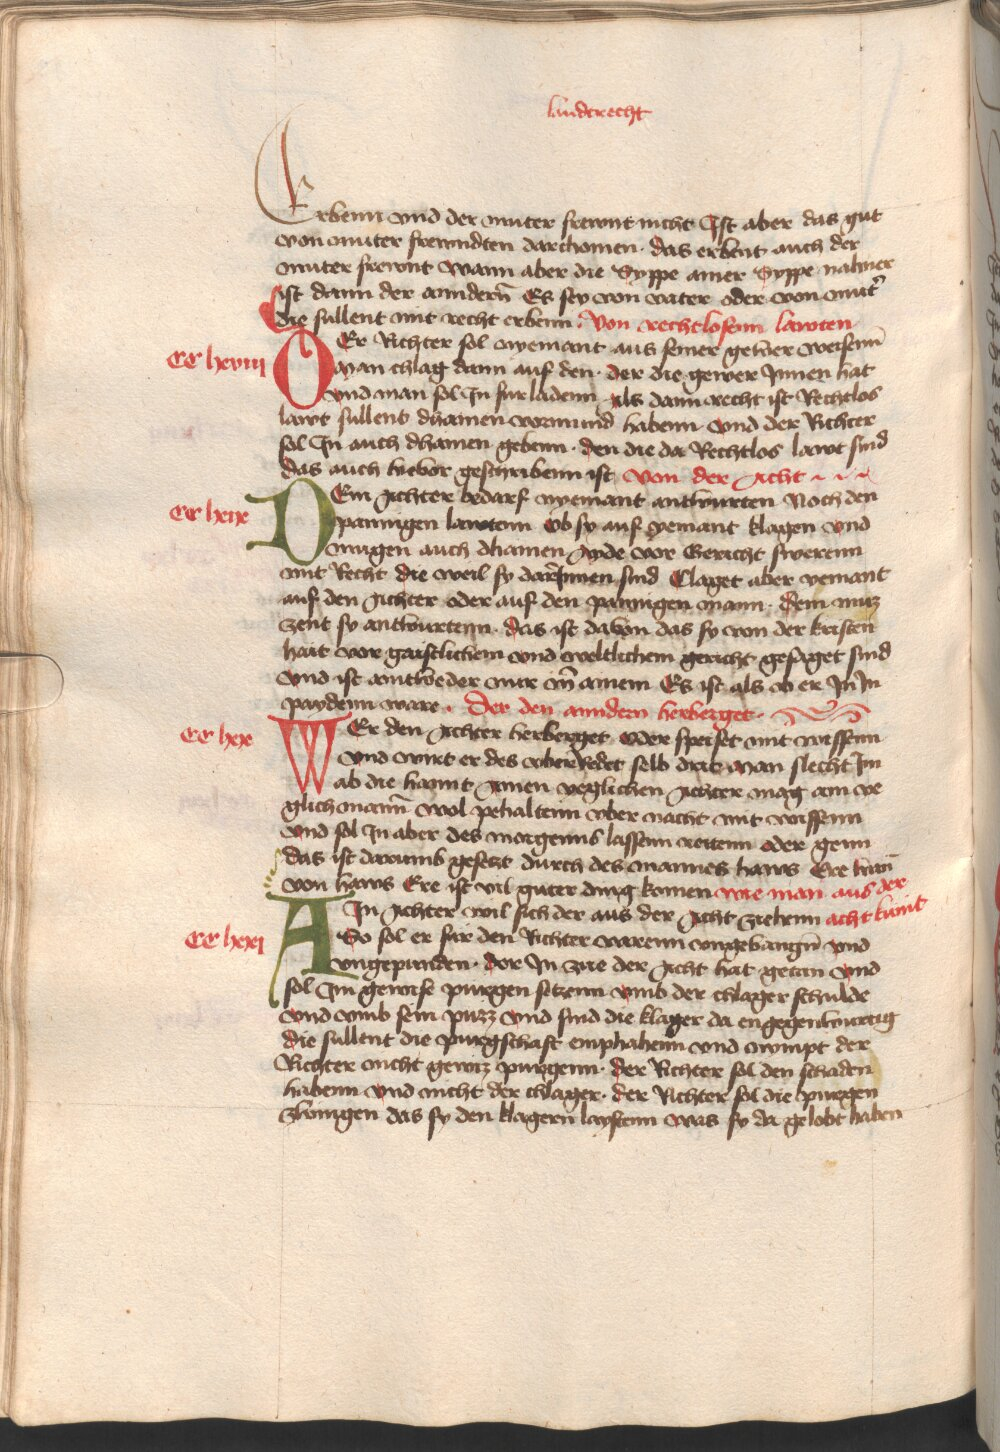 landtrecht
Erbenn vnd der muter frewnt nicht Ist aber das gut
von muter frewndten darchomen · das erbent auch der
muter frewnt wann aber die Syppe ainer Syppe nahner
ist dann der anndern̄ Es sey von vater oder von mut͛
die sullent mit recht erbenn · Von rechtlosenn lawten
CC lxviij
DEr Richter sol nyemant aus seiner gewer weisenn̄
man chlag dann auf den · der die gewer Innen hat
vnd man sol In furladenn als dann recht ist Rechtlos
lawt sullent dhainen vormund habenn vnd der Richter
sol In auch dhainen gebenn · den die da Rechtlos lawt sind
das auch hieuor geschribenn ist von der Acht
CC lxix
DEm Achter bedarf nyemant antwurten Noch den
pannigen lawtenn ob sy auf yemant klagen vnd
mugen auch dhainen Ayde vor Gericht swerenn
mit Recht die weil sy darInnen sind Claget aber yemant
auf den Achter oder auf den pannigen mann · dem muz
zent sy antwurtenn · das ist dauon das sy von der kristen
hait vor gaistlichem vnd weltlichem gericht gesaget sind
vnd ist aintweder nur in̄ ainem Es ist als ob er In In
paydenn ware · Der den anndern herberget ·
CC lxx
WEr den Achter herberget oder speiset mit wissenn
vnd wirt er des vberRedet selb drit man slecht Im
ab die hannt Ainen yeglichen Achter mag ain ye
glich mann̄ wol pehaltenn vber nacht mit wissenn
vnd sol In aber des morgenns lassenn reitenn oder genn
das ist darumb gesetzt durch des mannes haws Ere wan̄
von haws Ere ist vil guter ding komen wie man aus der
acht kumt
CC lxxj
AIn Achter wil sich der aus der Acht ziehenn
So sol er für den Richter varenn vngeuangn̄ vnd
vngepunden · der In zue der Acht hat getan vnd
sol Im gewise purgen setzenn vmb der chlager schulde
vnd vmb sein puzz vnd sind die klager da engegenwurtig
die sullent die purgschaft emphahenn vnd nympt der
Richter nicht gewiz purgenn · der Richter sol den schaden
habenn vnd nicht der chlager · der Richter sol die purgen
zwingen das sy den klagern laystenn was sy da gelobt haben